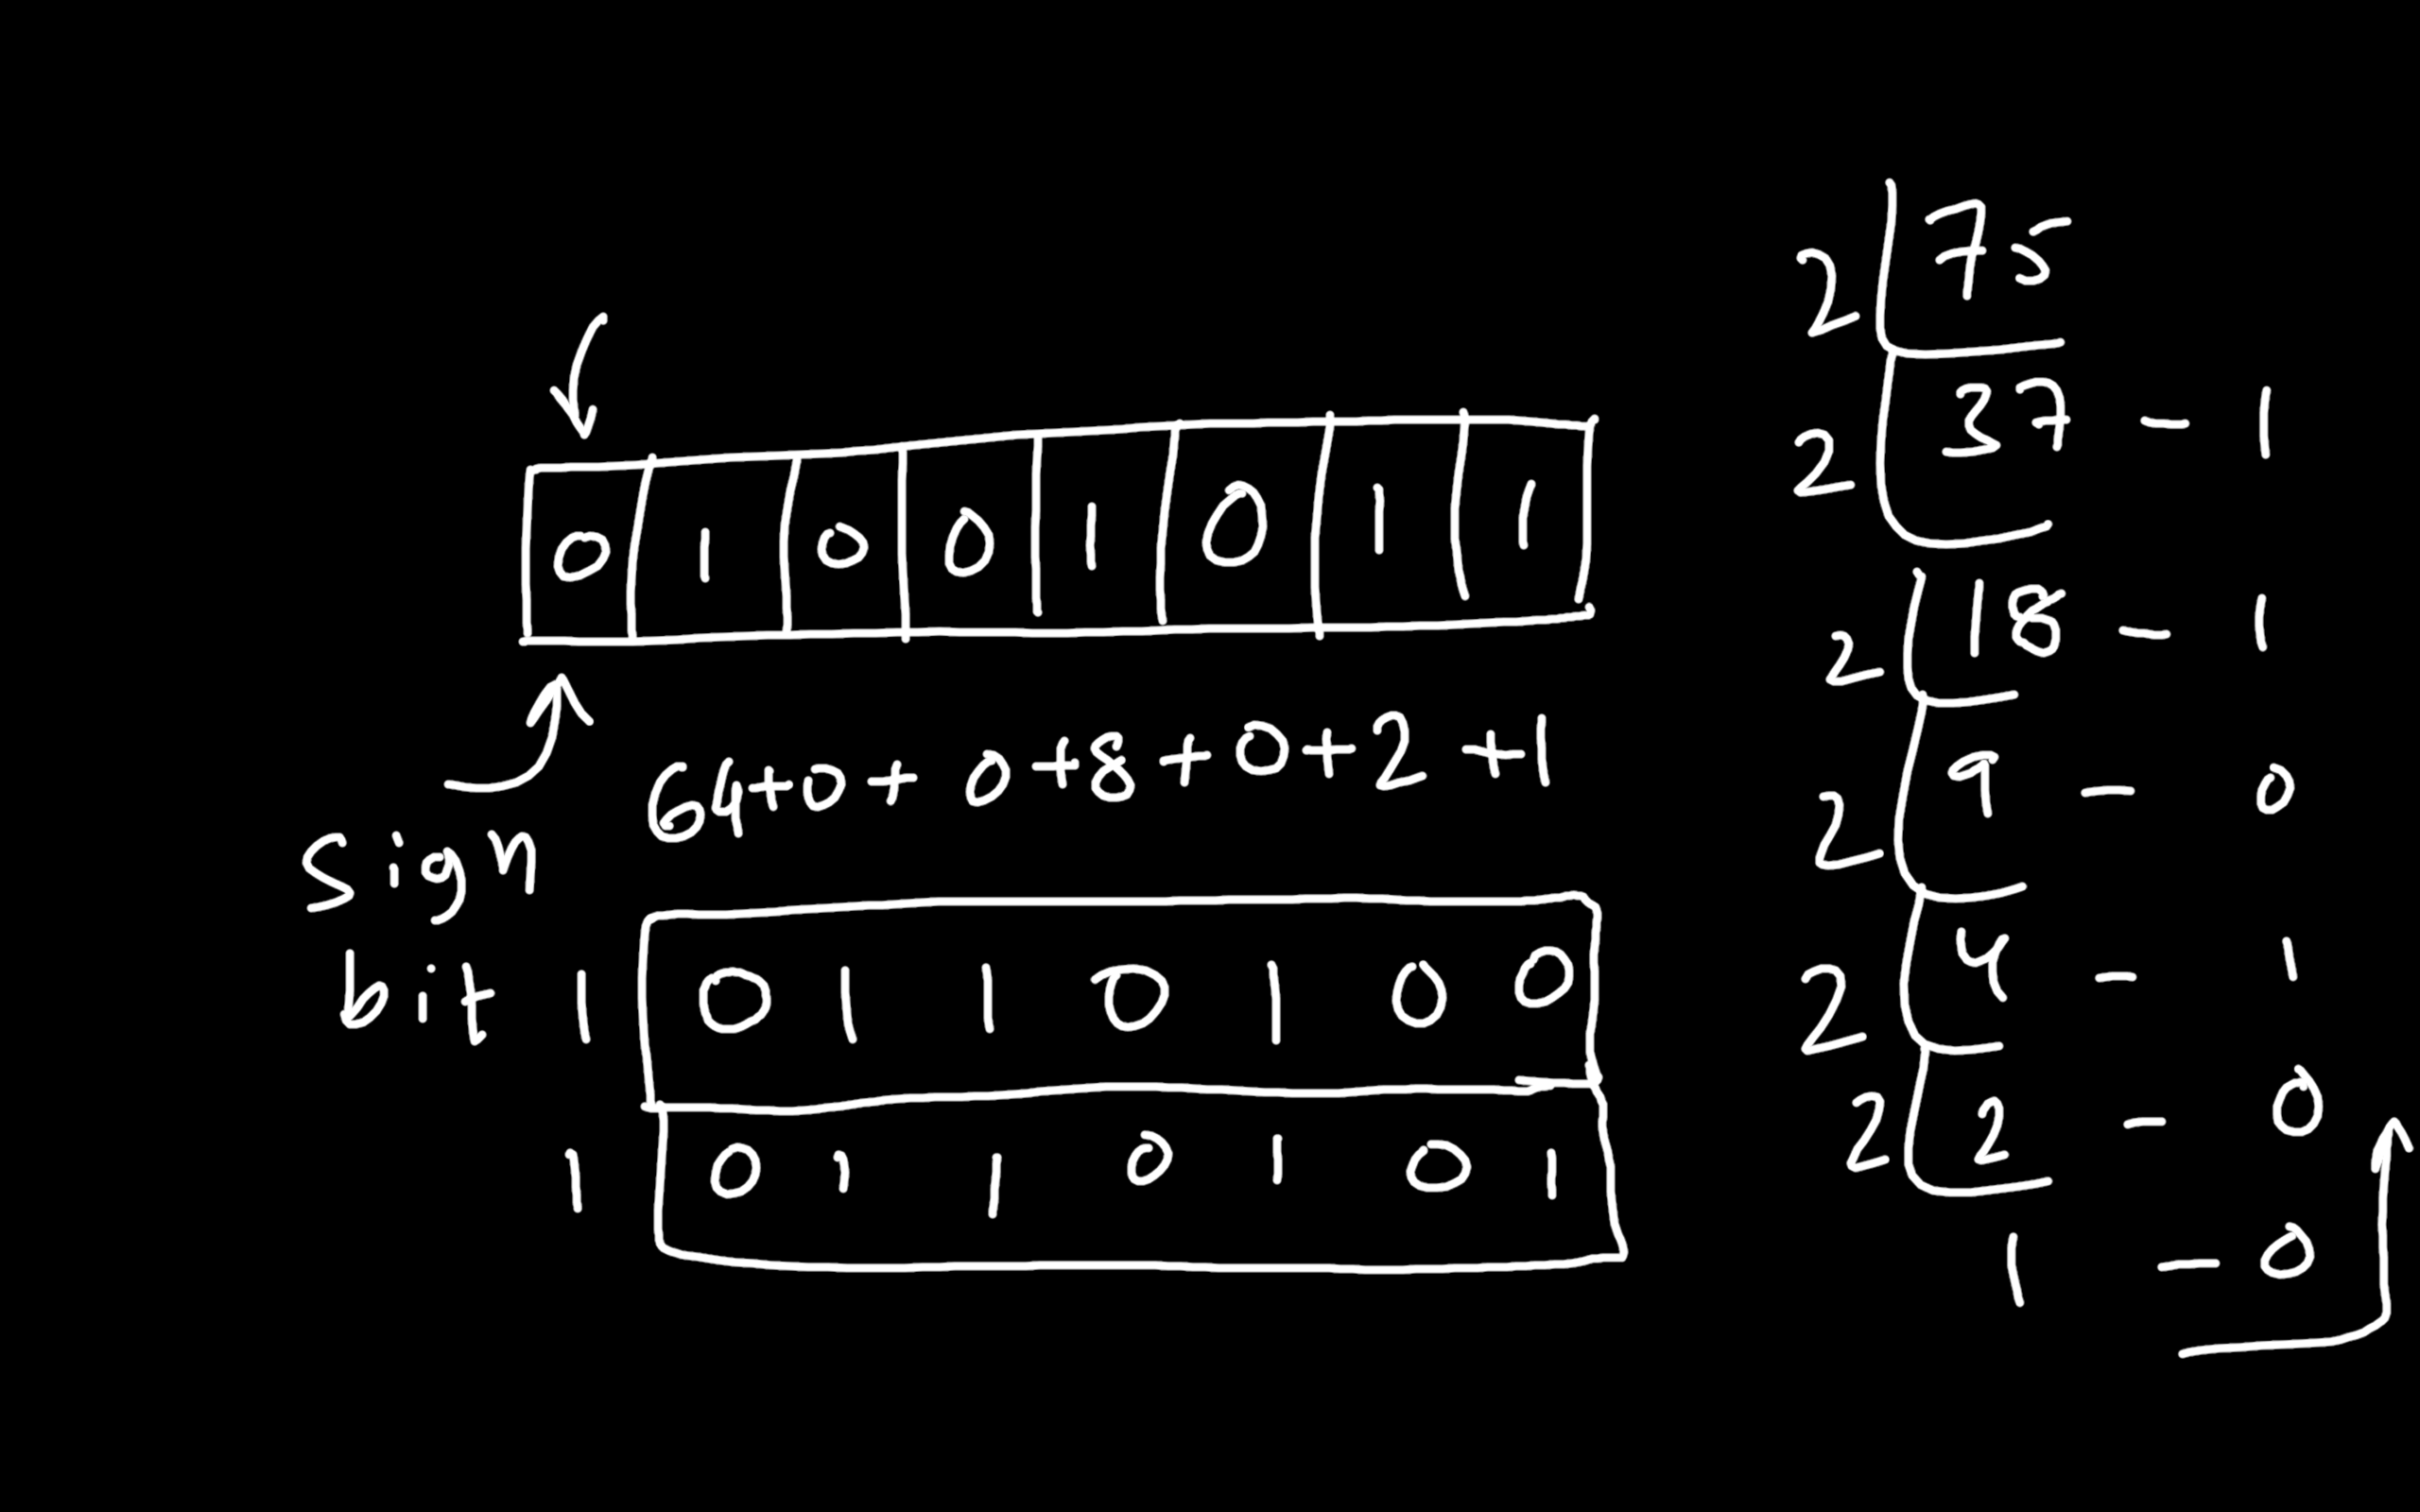 0 1 0 0 1 0 1 1
64+0+0+8+0+2+1
Sign
bit
1 0 1 1 0 1 0 0
1 0 1 1 0 1 0 1
2 75
2 37 - 1
2 18 - 1
2 9 - 0
2 4 - 1
2 2 - 0
1 - 0